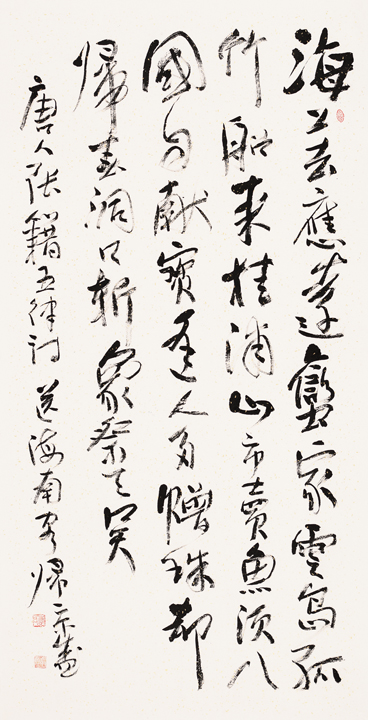 海上去應遠蠻家雲島孤
竹船来桂浦山市賣魚須入
國自献寶逢人多贈珠却
歸春洞口斬象祭天吴
唐人張籍五律詩送海南客歸